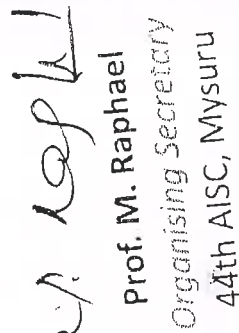 Prof. M. Raphael
Organising Secretary
44th AISC, Mysuru